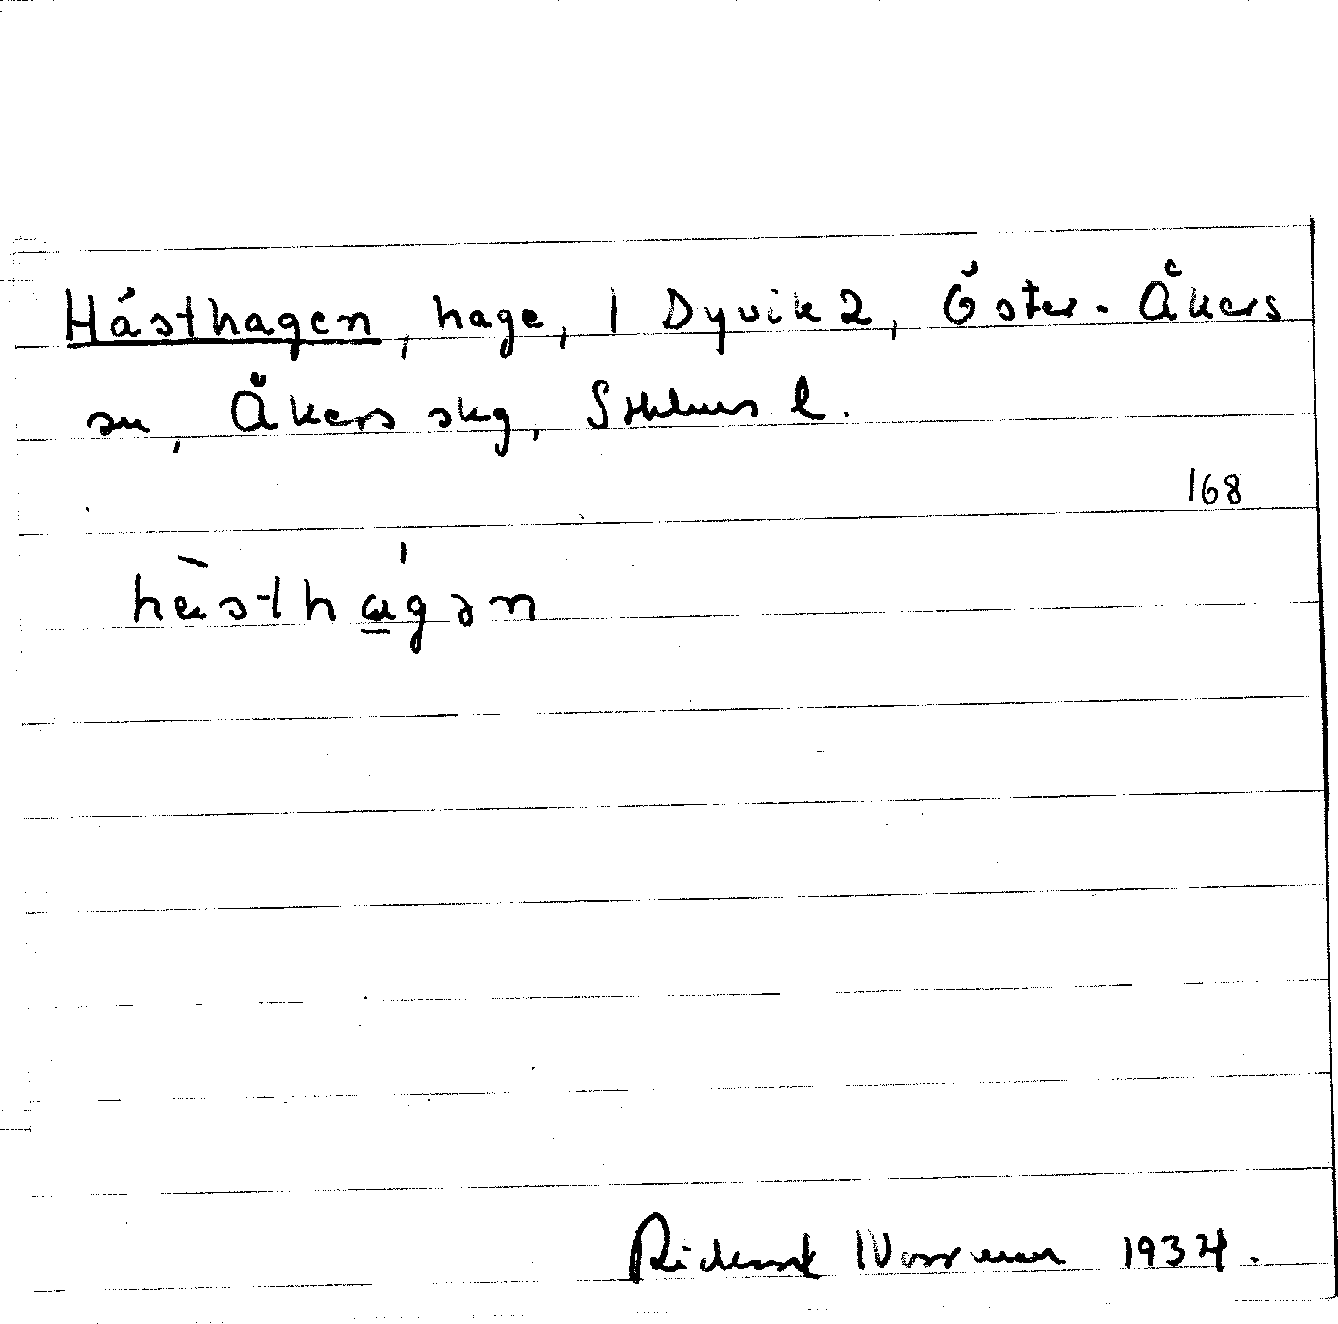 Hästhagen, hage, 1 Dyvik 2, Öster-Åkers
sn, Åkers skg, Sthlms l.
168
hästhagən
Rickard Norrman 1934.